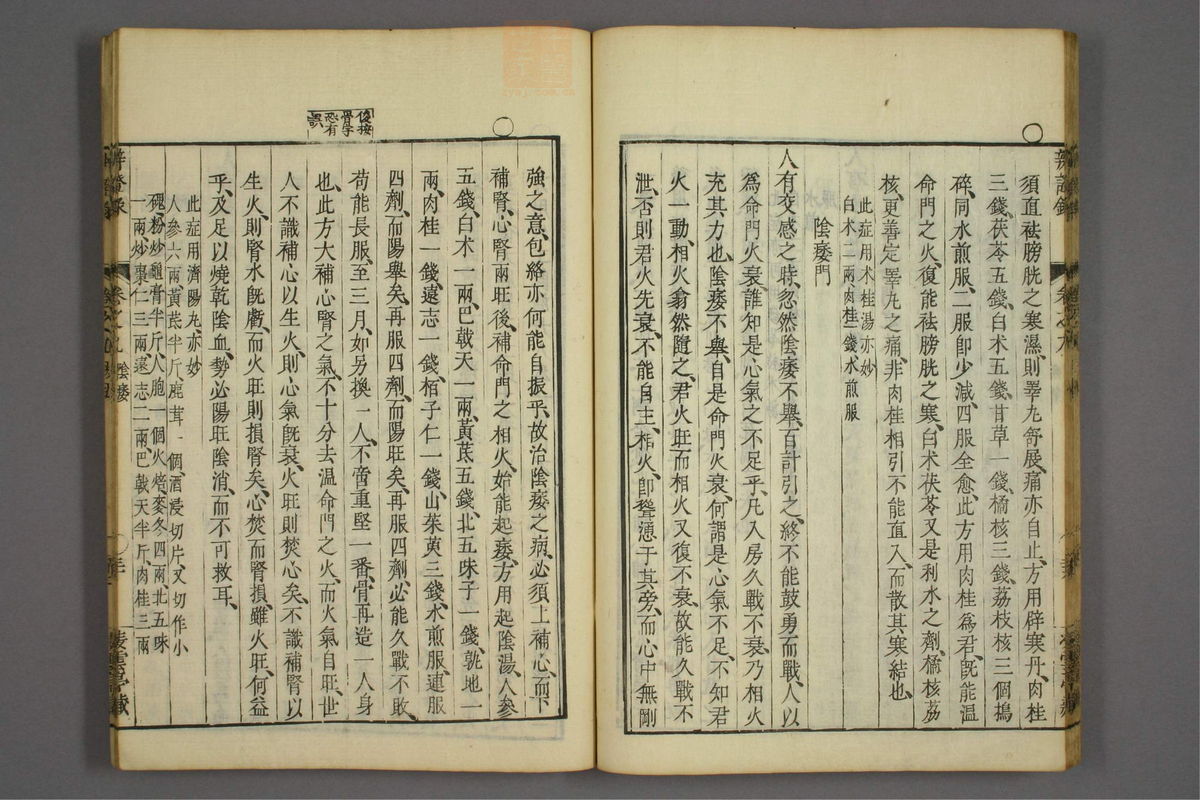 須直祛膀胱之寒濕、則睪丸舒展、痛亦自止、方用辟寒丹、肉桂
三錢、茯苓五錢、白术五錢、甘草一錢、橘核三錢、荔枝核三個搗
碎、同水煎服、二服卽少減、四服全愈、此方用肉桂爲君、旣能溫
命門之火、復能祛膀胱之寒、白术茯苓又是利水之劑、橘核荔
核、更善定睪丸之痛、非肉桂相引、不能直入、而散其寒結也、
此症用术桂湯亦妙
白术二兩、肉桂二錢、水煎服
陰痿門
人有交感之時、忽然陰痿不舉、百計引之、終不能鼓勇而戰、人以
爲命門火衰、誰知是心氣之不足乎、凡入房久戰不衰、乃相火
充其力也、陰痿不舉、自是命門火衰、何謂是心氣不足、不知君
火一動、相火翕然隨之、君火旺、而相火又復不衰、故能久戰不
泄、否則君火先衰、不能自主、相火卽怂慂于其旁、而心中無剛
強之意、包絡亦何能自振乎、故治陰痿之病、必須上補心、而下
補腎、心腎兩旺後、補命門之相火、始能起痿、方用起陰湯、人參
五錢、白术一兩、巴戟天一兩、黃芪五錢、北五味子一錢、熟地一
兩、肉桂一錢、遠志一錢、栢子仁一錢、山茱萸三錢、水煎服、連服
四劑、而陽舉矣、再服四劑、而陽旺矣、再服四劑、必能久戰不敗、
苟能長服、至三月、如另換一人、不啻重堅一番、骨再造一人身
也、此方大補心腎之氣、不十分去溫命門之火、而火氣自旺、世
人不識補心以生火、則心氣旣衰、火旺則焚心矣、不識補腎以
生火、則腎水旣虧、而火旺則損腎矣、心焚而腎損、雖火旺、何益
乎、及足以燒乾陰血、勢必陽旺陰消、而不可救耳、
此症用濟陽丸、亦妙
人參六兩、黃芪半斤、鹿茸一個、酒浸切片、又切作小
塊、粉炒、龜膏半斤、人胞一個、火焙、麥冬四兩、北五味
一兩、炒棗仁三兩、遠志二兩、巴戟天半斤、肉桂三兩
後按
骨字
恐有
誤
辨證錄
卷之九
陰痿